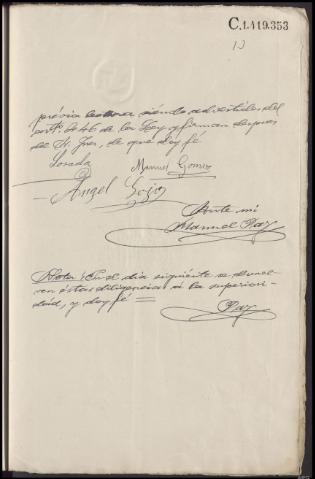 C.1.419.353
10
prévia lectura siendo advertidos del
artº 446 de la Ley y firman despues
de S. Sria, de que doy fé
Losada Manuel Gomez
Angel
Ante mi
Manuel Paz
Nota: En el dia siguiente se devuel-
ven éstas diligencias á la superiori-
dad, y doy fé =
Paz